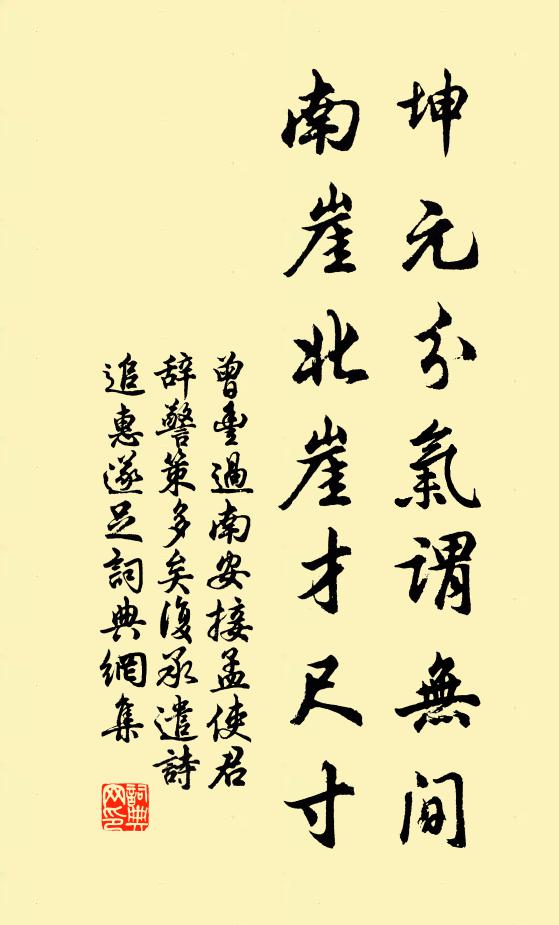 坤元分氣謂無间
南崖北崖才尺寸
曾豐過南安接孟使君
辞警策多矣復承遣詩
追惠遂足詞典網集
詞典网印